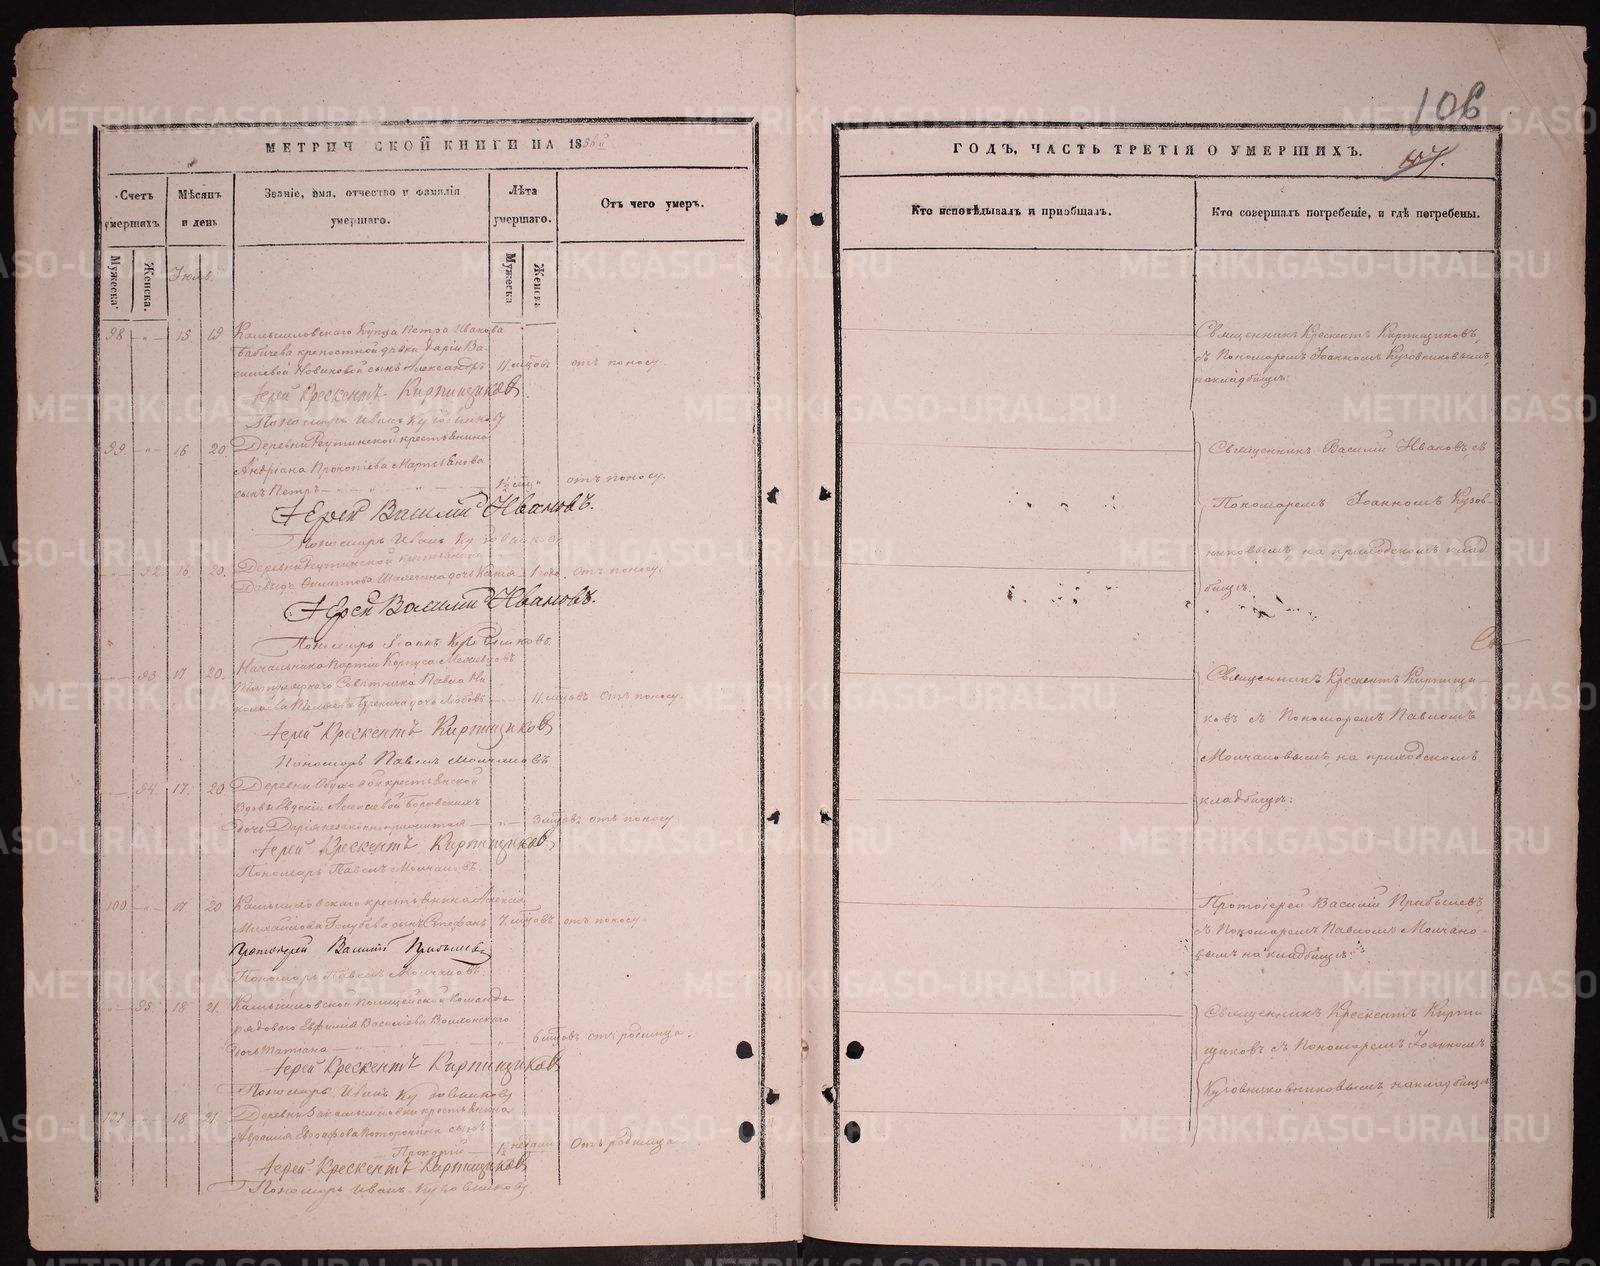 106
107.
МЕТРИЧ СКОЙ КНИГИ НА 1856й
ГОДЪ, ЧАСТЬ ТРЕТІЯ О УМЕРШИХЪ.
Счетъ умершихъ.
Мѣсяцъ и день
Званіе, имя, отчество и фамилія умершаго.
Лѣта умершаго.
Отъ чего умеръ.
Кто исповѣдывалъ и приобщалъ.
Кто совершалъ погребеніе, и гдѣ погребены.
Мужеска
Женска.
Іюль
Мужеска
Женска
98 15. 19 Камышловскаго купца Петра Иванова
Бабичева крепостной девки Дарьи Ва-
сильевой Новиковой сынъ Александръ 11 мцовъ отъ поносу
Іерей Крескентъ Кирпищиковъ
Пономарь Иванъ Кузовниковъ
Священникъ Крескентъ Кирпищиковъ,
съ Пономаремъ Іоанномъ Кузовниковымъ,
на кладбищѣ.
99 16 20 Деревни Реутинской крестьянина
Андріана Прокопіева Мартьянова
сынъ Петръ 1½ мца отъ поносу.
Іерей Василій Ивановъ.
Пономарь Иванъ Кузовниковъ
Священникъ Василій Ивановъ, съ
Пономаремъ Іоанномъ Кузов-
никовымъ на приходскомъ клад
бищѣ.
92 16 20. Деревни Реутинской крестьянина
Давыда Филиппова дочь 1 года. Отъ поносу.
Іерей Василій Ивановъ.
Пономарь Іоаннъ Кузовниковъ.
93 17 20. Начальника партіи Корпуса Межевщовъ
Титулярнаго Советника Павла Ни
колаева дочь Любовь 11 мцовъ Отъ поносу.
Іерей Крескентъ Кирпищиковъ
Пономарь Павелъ Молчановъ
Священникъ Крескентъ Кирпищи-
ковъ съ Пономаремъ Павломъ
Молчановымъ, на приходскомъ
кладбищѣ:
94 17. 20 Деревни крестьянской
вдовы Евдокіи Алексіевой Боровскихъ
дочь Дарія незаконнорожденная 3 мцовъ отъ поносу.
Іерей Крескентъ Кирпищиковъ
Пономарь Павелъ Молчановъ.
100 17 20 Камышловскаго крестьянина Алексія
Михайлова Голубева сынъ Стефанъ 7 мцовъ отъ поносу.
Протоіерей Василій Прибылевъ
Пономарь Павелъ Молчановъ.
Протоіерей Василій Прибылевъ,
съ Пономаремъ Павломъ Молчано-
вымъ на кладбищѣ:
95. 18 21. Камышловской Полицейской команды
рядоваго Евфимія Василіева Волконскаго
дочь Татіана 6 мцовъ отъ родимца.
Іерей Крескентъ Кирпищиковъ
Пономарь Иванъ Кузовниковъ
Священникъ Крескентъ Кирпи-
щиковъ съ Пономаремъ Іоанномъ
Кузовниковниковымъ, на кладбищѣ
101 18 21. Деревни Закамышловки крестьянина
Авраамія Евграфова сынъ
Прокопій 1½ недели Отъ родимца.
Іерей Крескентъ Кирпищиковъ
Пономарь Иванъ Кузовниковъ.
METRIKI.GASO-URAL.RU